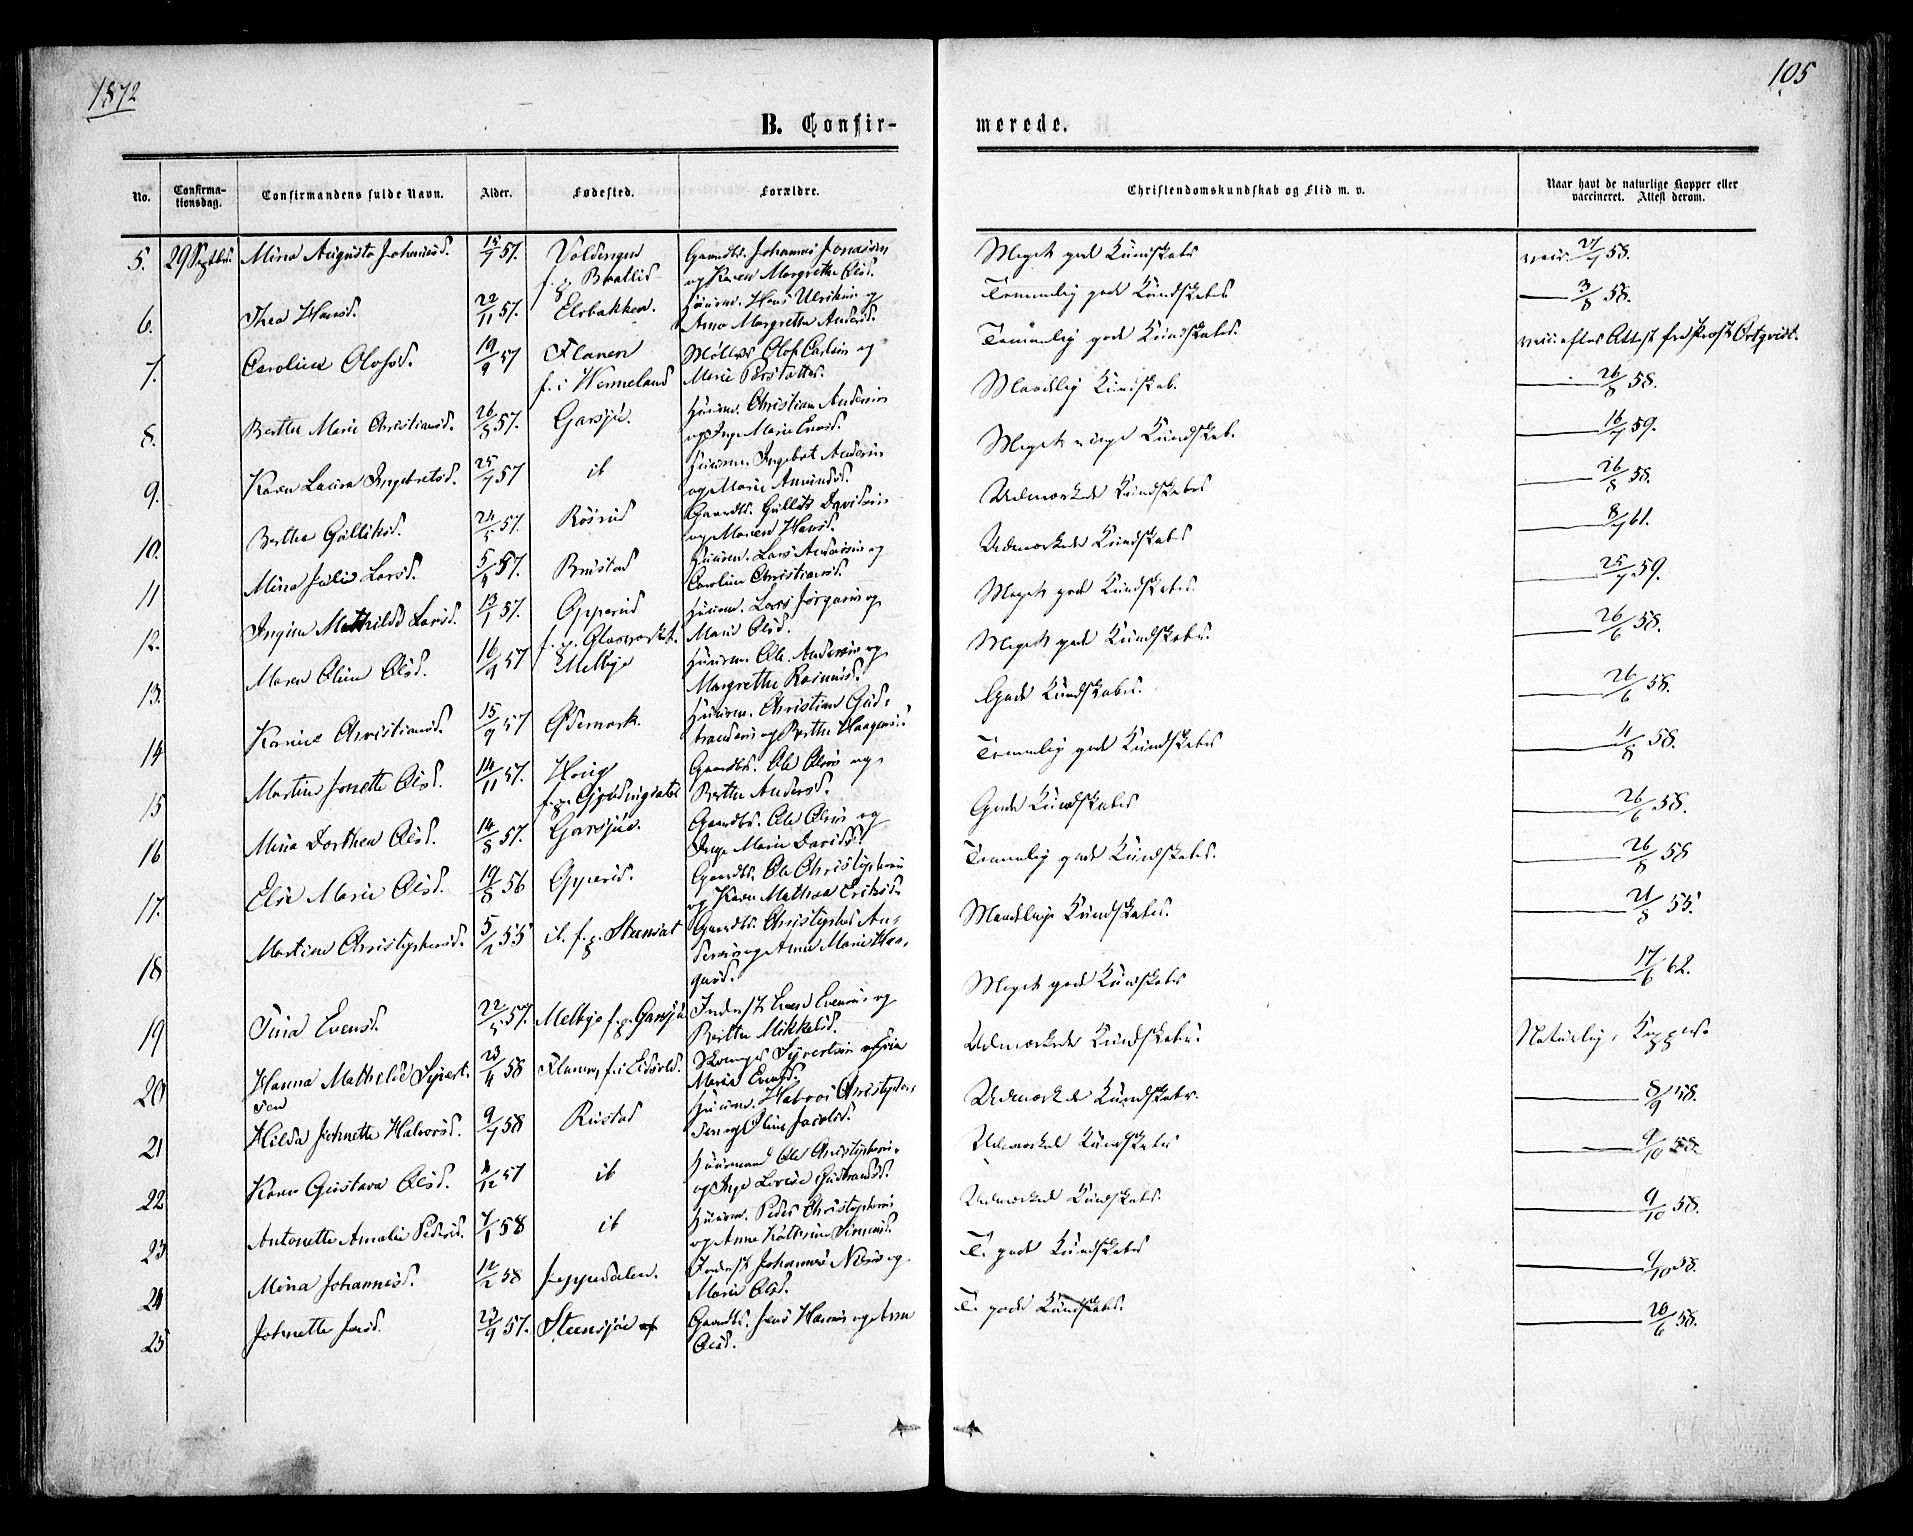 1872
105
B. Confir-
merede.
No.
Confirma-
tionsdag.
Confirmandens fulde Navn.
Alder.
Fødested.
Forældre.
Christendomskundskab og Flid m. v.
Naar havt de naturlige Kopper eller
vaccineret. Attest derom.
5. 29 Septbr. Mina Augusta Johannesd. 15/7 57. Voldengud Gaardbr. Johannes Jonassen
f. p. Braatlid og Karen Margrethe Olsd.
Meget god Kundskab vacc. 27/7 58.
6. Thea Hansd. 22/11 57. Elvbakken. Huusm. Hans Ulriksen og
Anna Margrethe Andersd.
Temmelig gode Kundskaber 3/8 58.
7. Caroline Olofsd. 19/9 57 Flanen Møller Olof Carlsen og
f. i Wermeland Marie
Temmelig gode Kundskaber. vacc. efter Attest fra Prost Ortqvist.
8. Berthe Marie Christiansd. 26/8 57. Garsjøe. Huusm. Christian Andersen
og Inge Marie Evensd.
Maadelig Kundskab. 26/8 58.
9. Karen Laura Ingebretsd. 25/7 57 ib Huusm. Ingebret Andersen
og Marie Amundsd.
Meget ringe Kundskab. 16/7 59.
10. Berthe Gulliksd. 24/5 57. Røsrud Gaardbr. Gullik Davidsen
og Maren Hansd.
Udmærkede Kundskaber 26/8 58.
11 Mina Julie Larsd. 5/9 57. Brustad Huusm. Lars Andersen og
Caroline Christiansd.
Udmærkede Kundskaber 8/7 61.
12. Ingine Mathilde Larsd. 13/1 57. Opperud Huusm. Lars Jørgensen og
f. p. Glasværket. Marie Olsd.
Meget gode Kundskaber. 25/7 59.
13. Maren Oline Olsd. 16/9 57 Melbye Huusm. Ole Andersen og
Margrethe Rasmusd.
Meget gode Kundskaber. 26/6 58.
14 Karine Christiansd. 15/9 57 Ødemark. Huusm. Christian Gud-
brandsen og Berthe Haagensd.
Gode Kundskaber. 26/6 58.
15 Martine Jonette Olsd. 14/11 57. Houg Gaardbr. Ole Olsen og
Berthe Andersd.
Temmelig gode Kundskaber 4/8 58.
16 Mina Dorthea Olsd. 14/8 57. Garsjøe. Gaardbr. Ole Olsen og
Inge Marie Davidsd.
Gode Kundskaber 26/6 58.
17. Elise Marie Olsd. 19/8 56 Opperud. Gaardbr. Ole Christophersen
og Karen Mathea Eriksd.
Temmelig gode Kundskaber. 26/8 58
18 Martine Christophersd. 5/2 55 ib. f. p. Gaardbr. Christopher An-
dersen og Anne Marie Haa-
gensd.
Maadelige Kundskaber. 21/8 55.
19 Tina Evensd. 22/5 57. Melbye f. p. Garsjø Inderst Even Evensen og
Berthe Mikkelsd.
Meget gode Kundskaber 17/6 62.
20 Hanna Mathilde Syvert- 23/4 58 Flanen, f. i Eidsvold. Syvertsen og
sen Maria Evensd.
Udmærkede Kundskaber. Naturlige Kopper.
21 Hilda Johnette Halvorsd. 9/7 58 Rustad Huusm. Halvor Christopher-
sen og Oline Jacobsd.
Udmærkede Kundskaber. 8/9 58.
22 Karen Gustava Olsd. 4/12 57 ib Huusmand Ole Christophersen
og Inge Lovise Gudbrandsd.
Udmærket Kundskaber 9/10 58.
23 Antonette Amalie Pedersd. 7/1 58 ib Huusm. Peder Christophersen
og Anne Kathrine Simensd.
Udmærkede Kundskaber. 9/10 58.
24 Mina Johannesd. 12/2 58 Jeppedalen. Inderst Johannes Nilsen og
Marie Olsd.
T. gode Kundskaber 9/10 58.
25 Johnette Jensd. 23/9 57. Steensjøe Gaardbr. Jens Hansen og Anne
Olsd.
T. gode Kundskaber. 26/6 58.